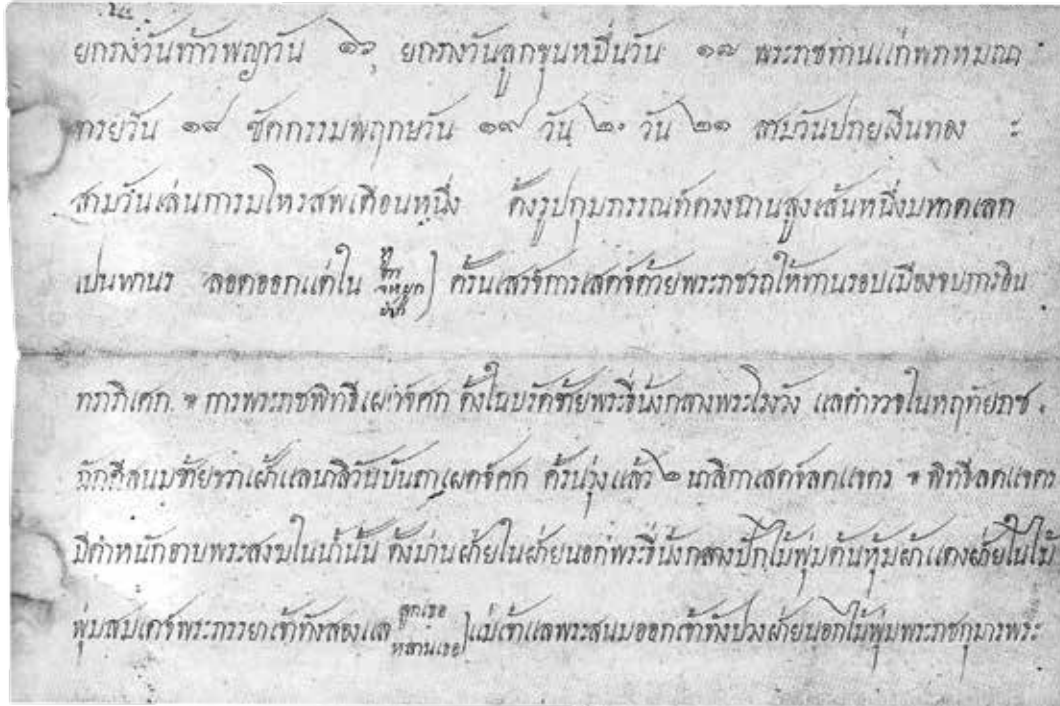 ยกรางวันท้าวพญาวัน ๑๖ ยกรางวันลูกขุนหมื่นวัน ๑๗ พระราชทานแก่พฤฒามาตย
กรยวัน ๑๘ ซัดกรรมพฤกษวัน ๑๙ วัน ๒๐ วัน ๒๑ สามวันปรายเงินทอง ะ
สามวันเล่นการมโหรสพเดือนหนึ่ง ตั้งรูปกุมภรรณท์ครงถานสูงเส้นหนึ่งบทาดเลก
เปนพานร ลอดออกแต่ใน ครั้นเสรจ์การเสดจ์ด้วยพระราชรถให้ทานรอบเมืองจบการอิน
ทราภิเศก ๚ การพระราชพิทธีเผาจ์ศก ตั้งในบรัดไชยพระธี่นั่งกลางพระโรงวัง แลตำรวจในหฤทัยราช
วันบันดาเผดจ์ศก ครั้นรุ่งแล้ว ๒ นาลิกาเสดจ์ลดแจตร ๚ พิทธีลดแจตร
มีตำหนักอาบพระสงฆในน้ำนั้น ตั้งม่านฝ่ายในฝ่ายนอกพระธี่นั่งกลางปักไม้พุ่มคันหุ้มผ้าแดงฝ่ายในไม้
พุ่มสมเดจ์พระภรรยาเจ้าทังสองแล ลูกเธอ หลานเธอ แม่เจ้าแลพระสนมออกเจ้าทังปวงฝ่ายนอกไม้พุ่มพระราชกุมารพระ